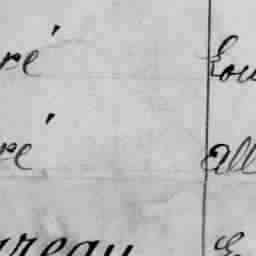 ré Lou
ré all
ureau